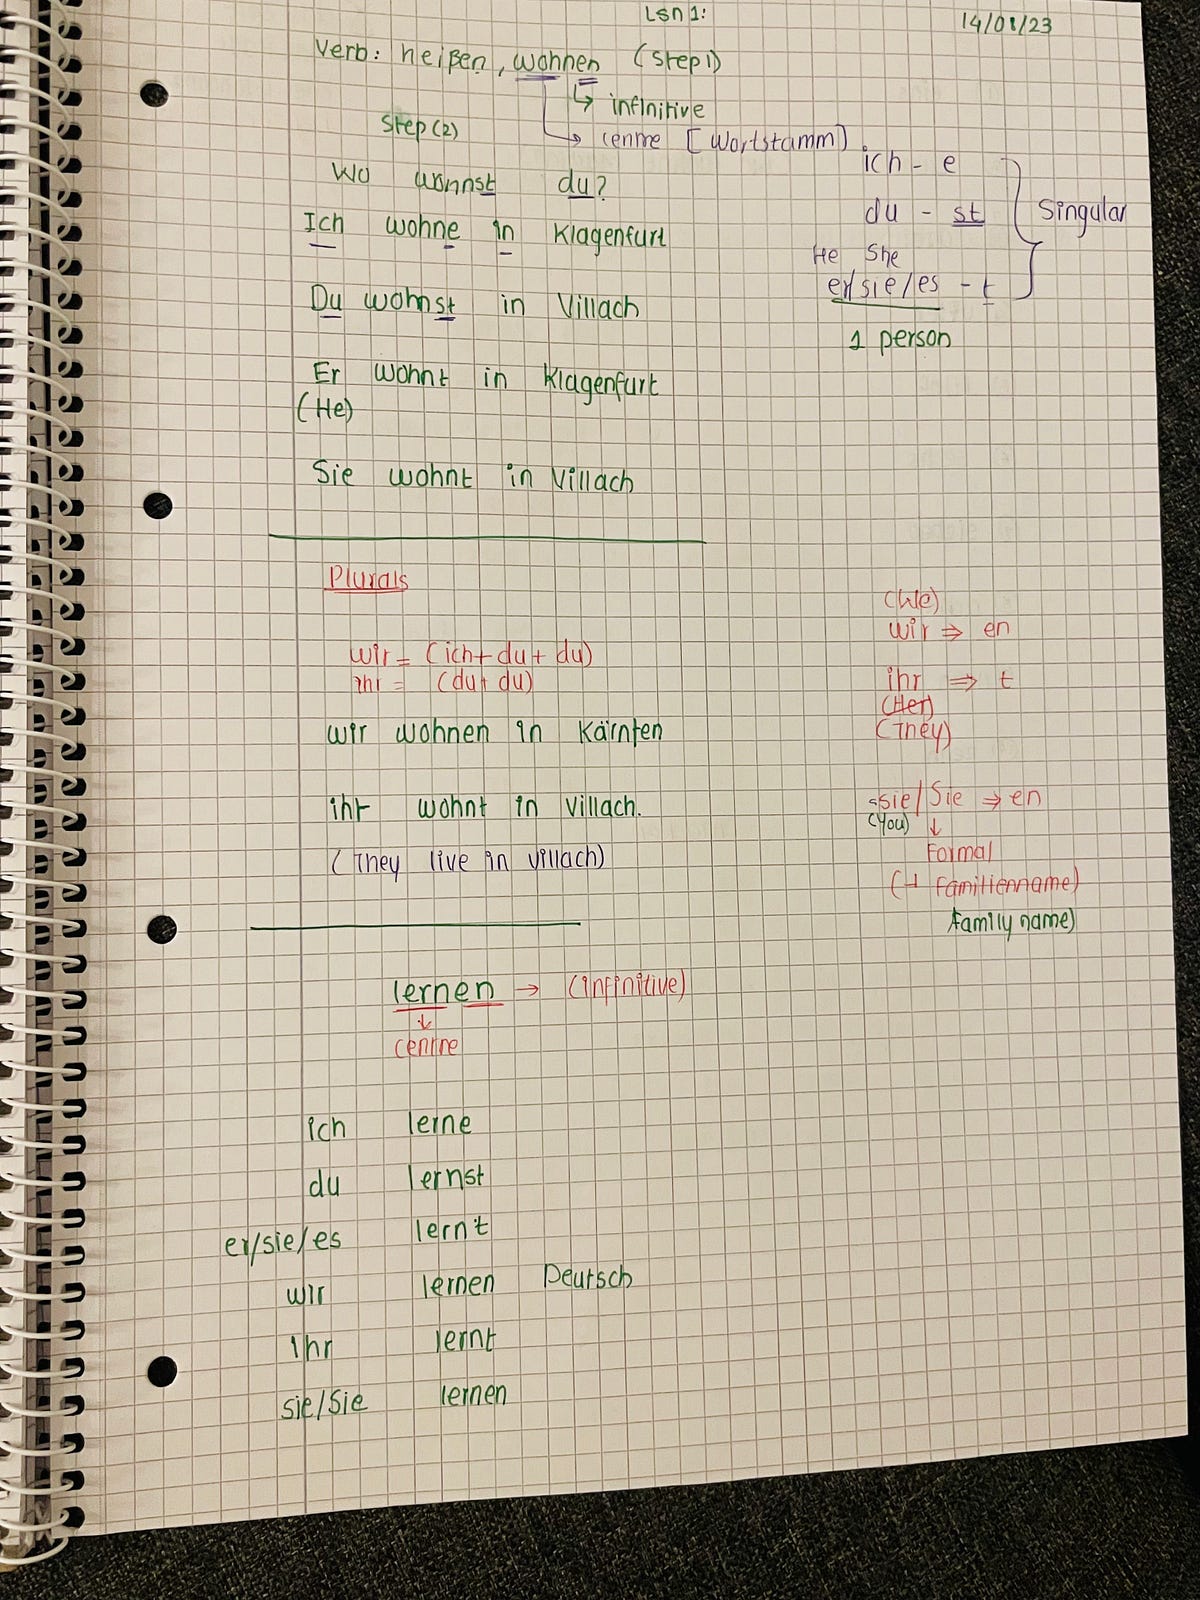 Lsn 1:
14/08/23
Verb: heißen, wohnen (Step 1)
↳ infinitive
Step (2)
→ centre [Wortstamm]
Wo wohnst du?
Ich wohne in Klagenfurt
Du wohnst in Villach
Er wohnt in Klagenfurt
(He)
Sie wohnt in Villach
ich - e
du - st
Singular
He She
er/sie/es - t
1 person
Plurals
wir = (ich + du + du)
ihr = (du + du)
wir wohnen in Kärnten
ihr wohnt in Villach.
(They live in villach)
(We)
wir ⇒ en
ihr ⇒ t
(Her)
(They)
sie/Sie ⇒ en
(You) ↓
Formal
(+ familienname)
family name)
lernen → (infinitive)
↓
centre
ich lerne
du lernst
er/sie/es lernt
wir lernen Deutsch
Ihr lernt
sie/Sie lernen